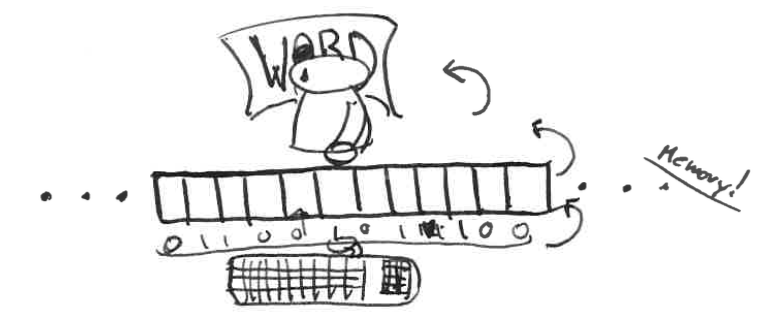 WORD
Memory!
0 1 1 0 0 1 0 1 1 0 0